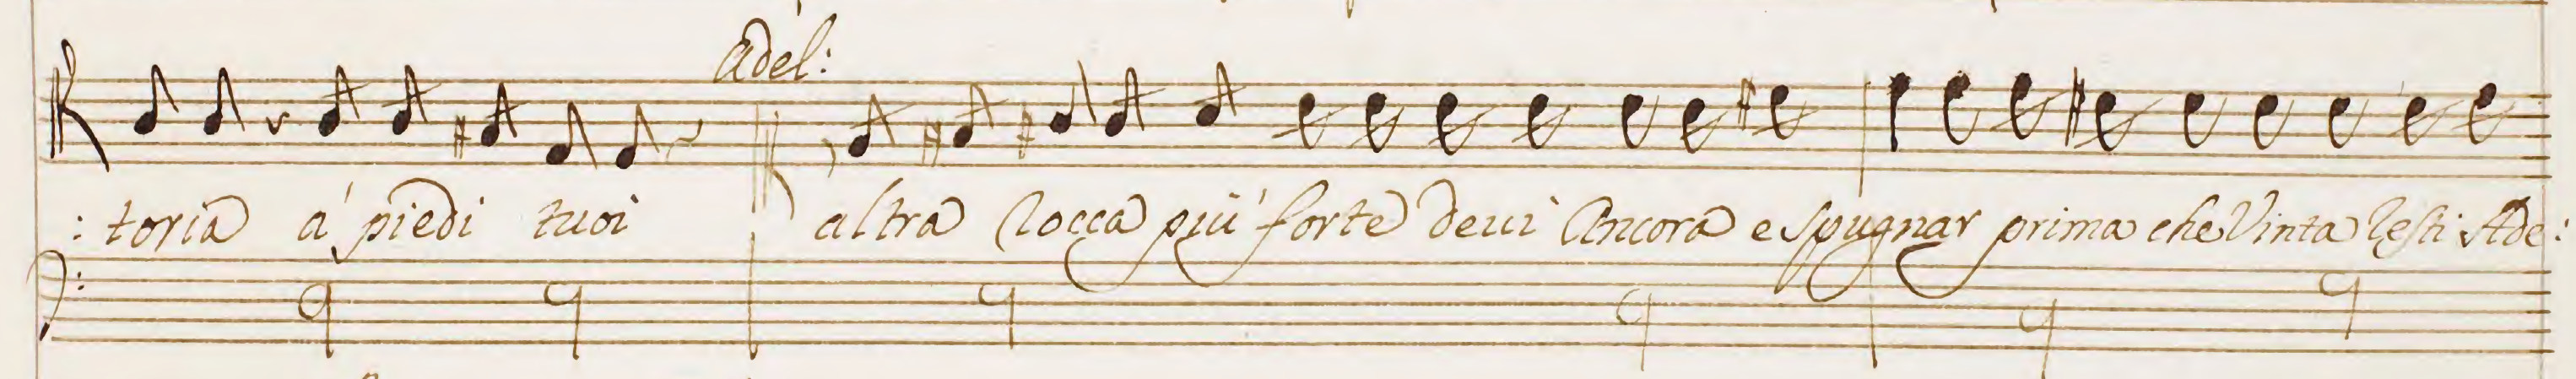 Adel:
:toria a' piedi tuoi altra Rocca più forte devi Ancora espugnar prima che Vinta Resti Ade: